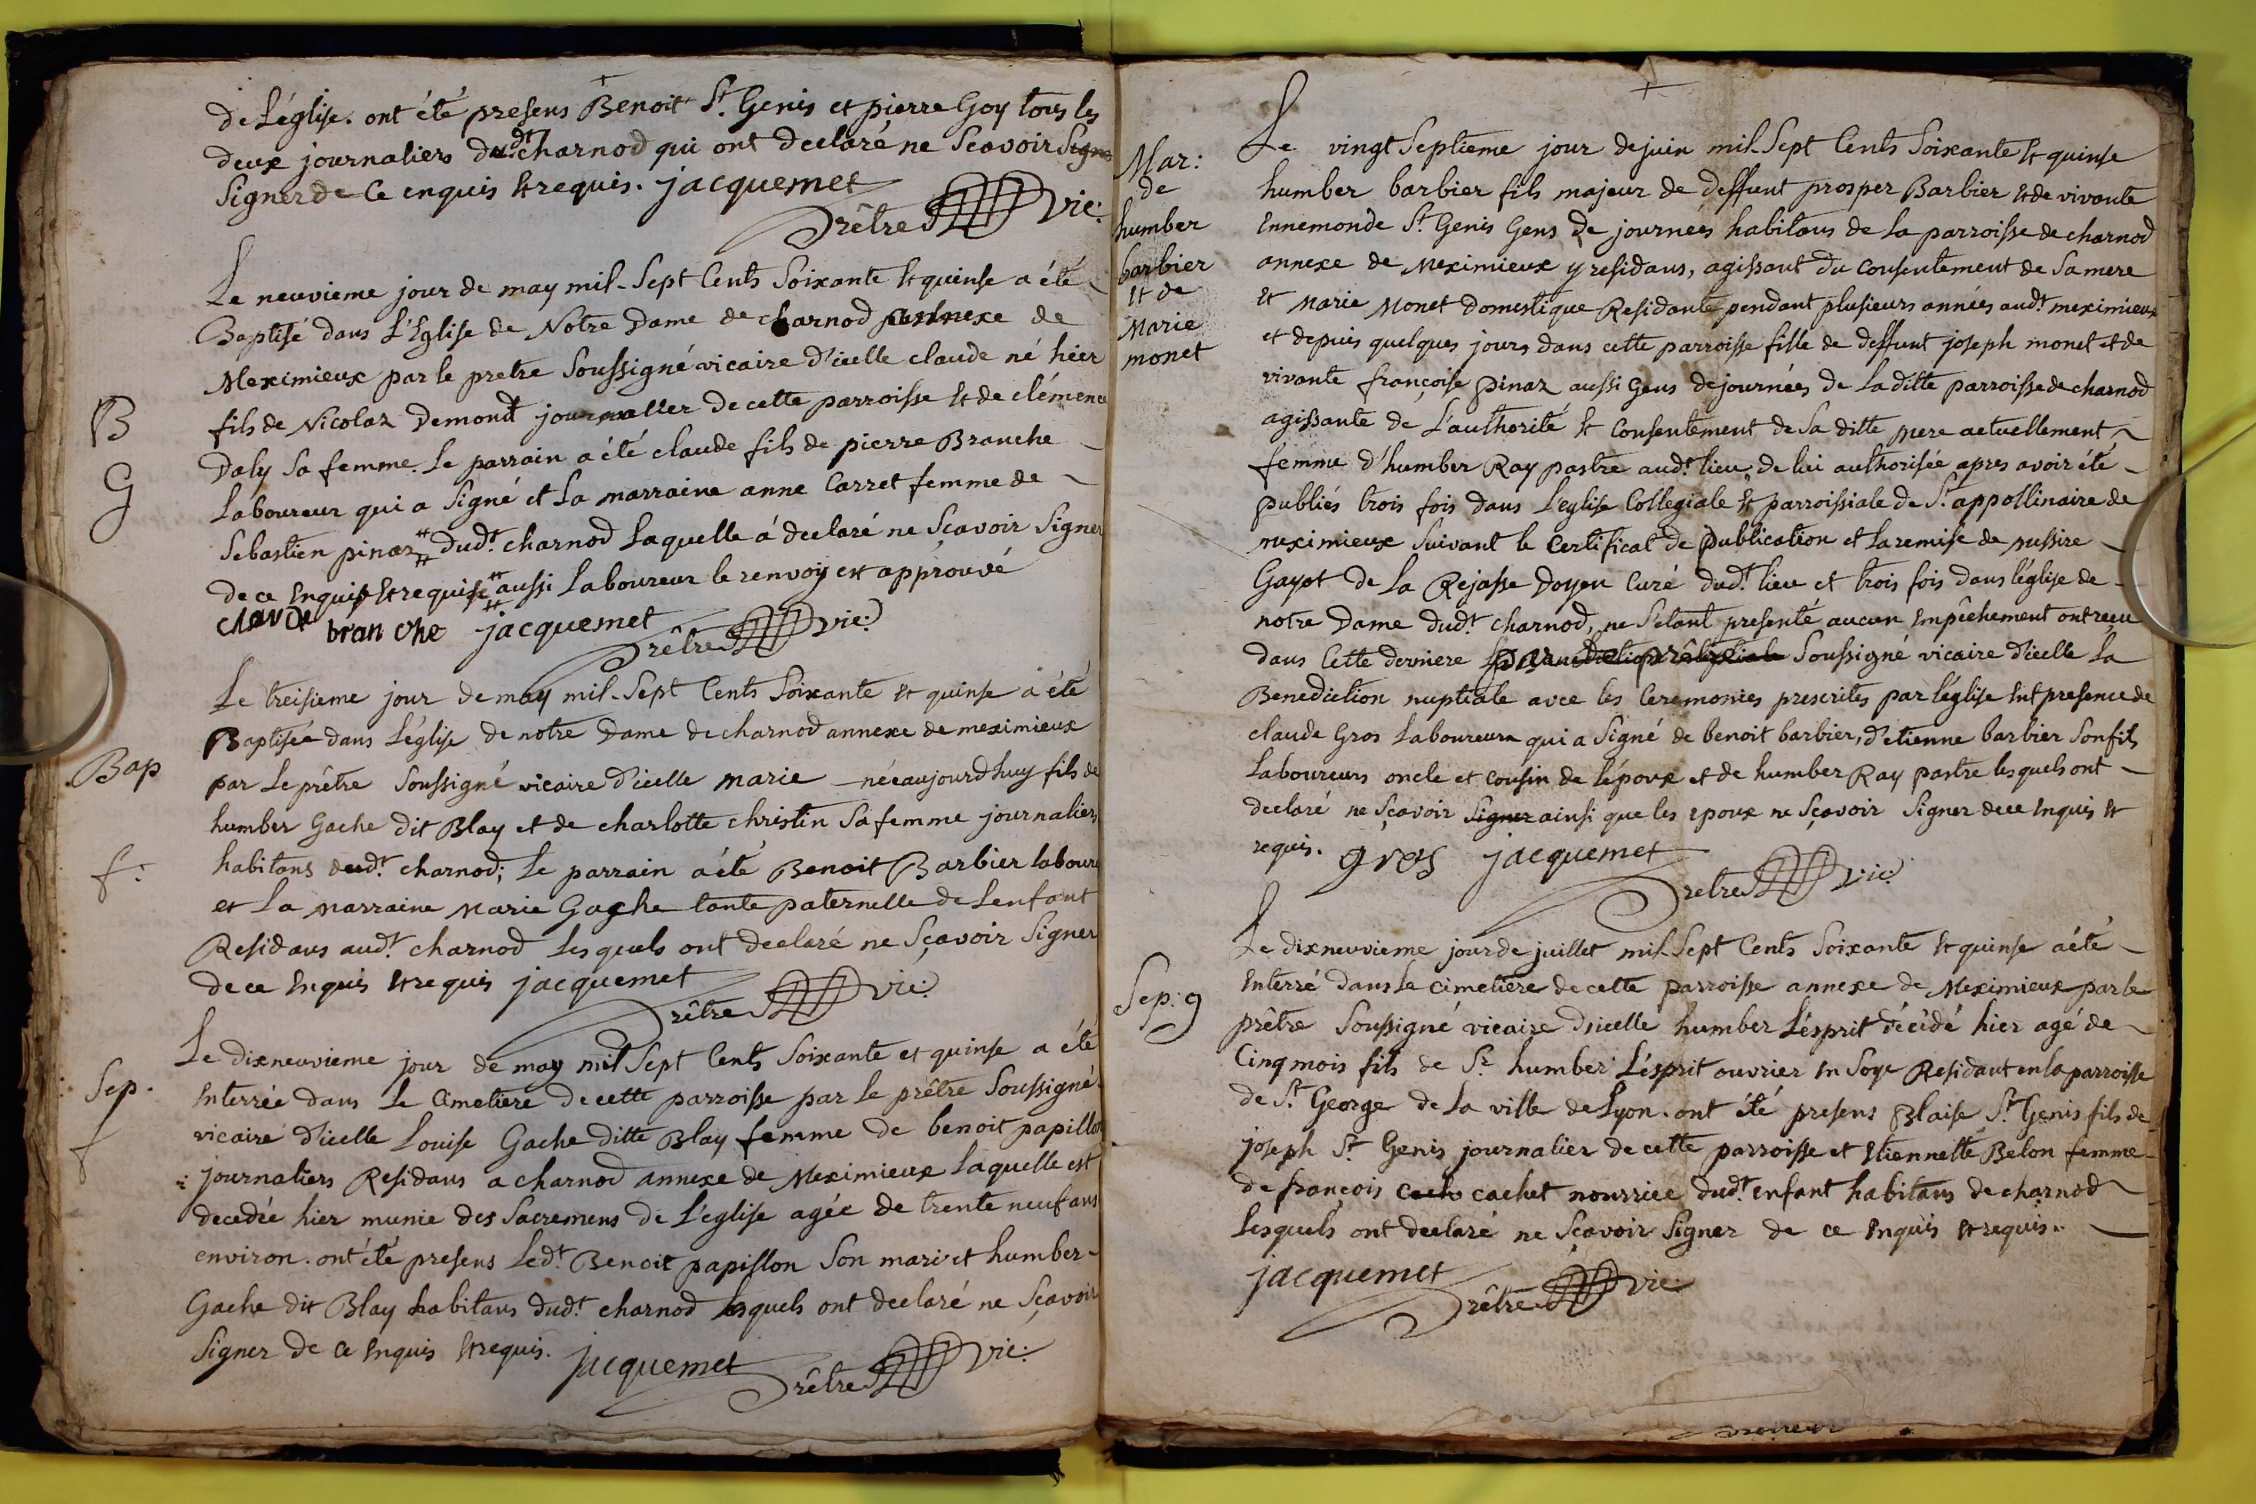 de L'église. ont été presens Benoit St. Genis et pierre Goy tous les
deux journaliers dudt. charnod qui ont declaré ne Scavoir Signe
Signer de Ce enquis Et requis. jacquemet
Prêtre vic:
Le neuvieme jour de may mil-Sept Cents Soixante Et quinse a été
Baptisé dans L'Eglise de Notre Dame de charnod annexe de
Meximieux par le pretre Soussigné vicaire d'icelle claude né hier
B
fils de Nicolaz Demond journallier de cette parroisse Et de clémence
Daly Sa femme. Le parrain a été claude fils de pierre Branche
G
Laboureur qui a Signé et La marraine anne Carret femme de
Sebastien pinaz # dudt. charnod Laquelle á declaré ne Sçavoir Signer
de ce Enquise Et requise # aussi Laboureur le renvoy est approuvé
claude branche jacquemet
Prêtre vic:
Le treisieme jour de may mil-Sept Cents Soixante Et quinse a été
Baptisée dans L'église de notre Dame de charnod annexe de meximieux
Bap
par Le prêtre Soussigné vicaire d'icelle marie née aujourdhuy fils de
humber Gache dit Blay et de charlotte christin Sa femme journaliers
f:
habitans dudt. charnod; Le parrain a été Benoit Barbier laboure
et La marraine Marie Gache tante paternelle de Lenfant
Residans audt. charnod Lesquels ont declaré ne Sçavoir Signer
de ce Enquis Et requis jacquemet
Prêtre vic:
Le dixneuvieme jour de may mil Sept Cents Soixante et quinse a été
Sep.
Enterrée dans Le Cimetiere de cette parroisse par le prêtre Soussigné
f
vicaire d'icelle Louise Gache ditte Blay femme de benoit papillon
journaliers Residans a charnod annexe de Meximieux Laquelle est
decedée hier munie des Sacremens de L'eglise agée de trente neuf ans
environ. ont été presens Ledt. Benoit papillon Son mari et humber
Gache dit Blay habitans dudt. charnod lesquels ont declaré ne Sçavoir
Signer de Ce Enquis Et requis. jacquemet
Prêtre vic:
Mar:
de
humber
barbier
Et de
Marie
monet
Le vingt Septieme jour de juin mil-Sept Cents Soixante Et quinse
humber barbier fils majeur de deffunt prosper Barbier Et de vivante
Ennemonde St. Genis Gens de journées habitans de La parroisse de charnod
annexe de Meximieux y residans, agissant du Consentement de Sa mere
Et Marie Monet Domestique Residante pendant plusieurs années audt. meximieux
et depuis quelques jours dans cette parroisse fille de deffunt joseph monet et de
vivante françoise pinaz aussi Gens de journées de Laditte parroisse de charnod
agissante de L'authorité Et Consentement de Sa ditte mere actuellement
femme d'humber Ray pastre audt. lieu de lui authorisée apres avoir été
publiés trois fois dans L'eglise Collegiale Et parroissiale de St. appollinaire de
meximieux Suivant le Certificat de publication et La remise de messire
Gayot de La Rejasse Doyen Curé dudt. lieu et trois fois dans l'église de
notre Dame dudt. charnod, ne S'étant presenté aucun Empêchement ont reçu
dans Cette derniere Soussigné vicaire d'icelle La
Benediction nuptiale avec les Ceremonies prescrites par l'église Ent presence de
claude Gros Laboureur qui a Signé de benoit barbier, d'etienne barbier Son fils
Laboureurs oncle et cousin de l'époux et de humber Ray pastre lesquels ont
declaré ne Sçavoir Signer ainsi que les epoux ne Sçavoir Signer de ce Enquis Et
requis. gros jacquemet
Prêtre vic:
Le dixneuvieme jour de juillet mil-Sept Cents Soixante Et quinse a été
Sep: g
Enterré dans Le cimetiere de cette parroisse annexe de Meximieux par le
prêtre Soussigné vicaire d'icelle humber L'ésprit décédé hier agé de
Cinq mois fils de Sr. humber L'ésprit ouvrier En Soye Residant en la parroisse
de St. George de La ville de Lyon. ont été presens Blaise St. Genis fils de
joseph St. Genis journalier de cette parroisse et Etiennette Belon femme
de françois cachet nourrice dudt. enfant habitans de charnod
Lesquels ont declaré ne Sçavoir Signer de ce Enquis Et requis.
jacquemet
Prêtre vic: